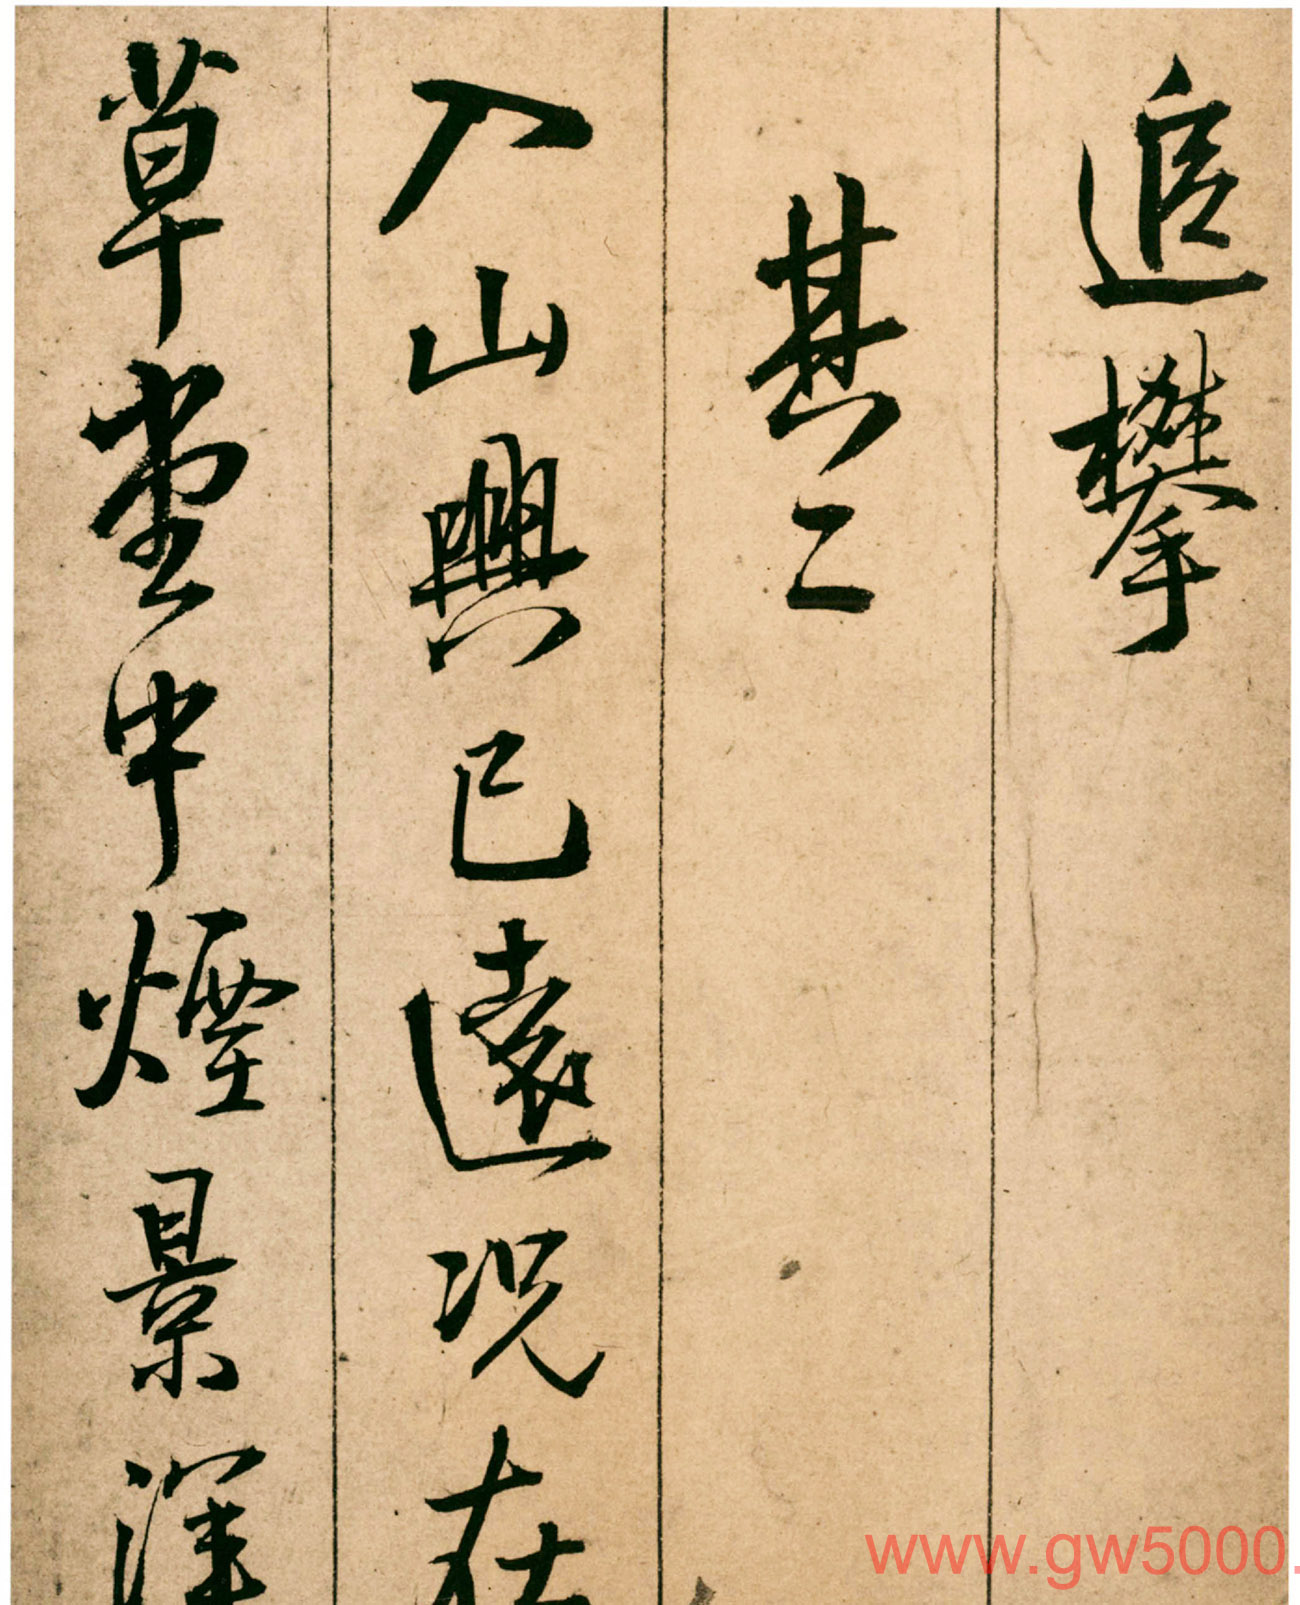 追攀
其二
入山興已遠況在
草堂中煙景渾
www.gw5000.